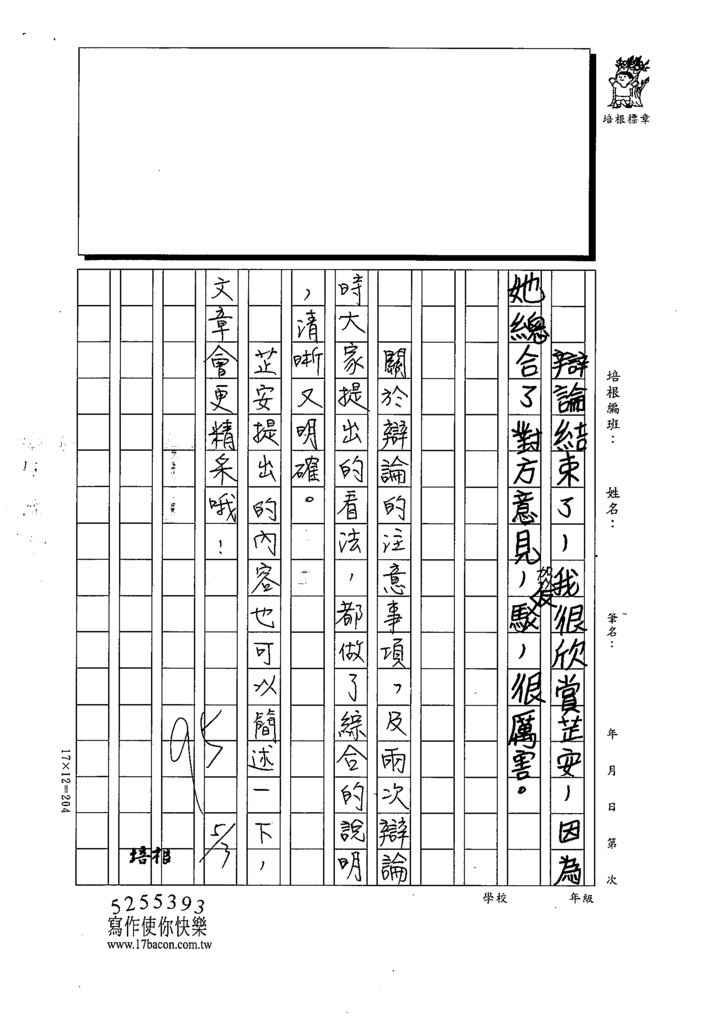 培根標章
培根編班：　姓名：　筆名：　年　月　日　第　次
年級
學校
辯論結束了，我很欣賞芷安，因為
她總合了對方意見，駁，很厲害。
加後
關於辯論的注意事項，及兩次辯論
時大家提出的看法，都做了綜合的說明
，清晰又明確。
芷安提出的內容也可以簡述一下，
文章會更精采哦！
95
5/3
培根
17×12=204
5255393
寫作使你快樂
www.17bacon.com.tw